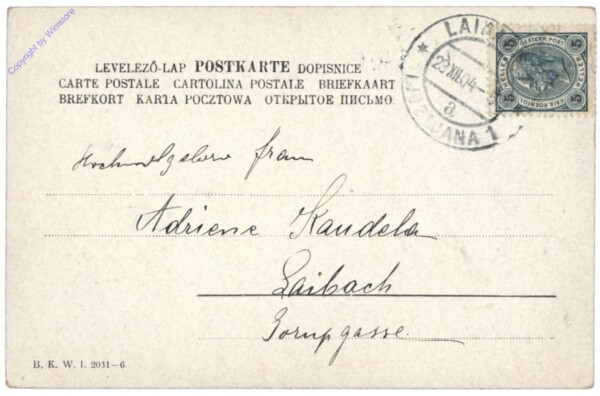 Copyright by Winstore
LEVELEZŐ-LAP POSTKARTE DOPISNICE
CARTE POSTALE CARTOLINA POSTALE BRIEFKAART
BREFKORT KARTA POCZTOWA ОТКРЫТОЕ ПИСЬМО
LAIB
23 XII 04
a
LJUBLJANA 1
5 5
OESTERR. POST
HELLER HELLER
5 5
Hochwolgeborn Frau
Adriene Kandela
Laibach
Gorupgasse.
B. K. W. I. 2031-6